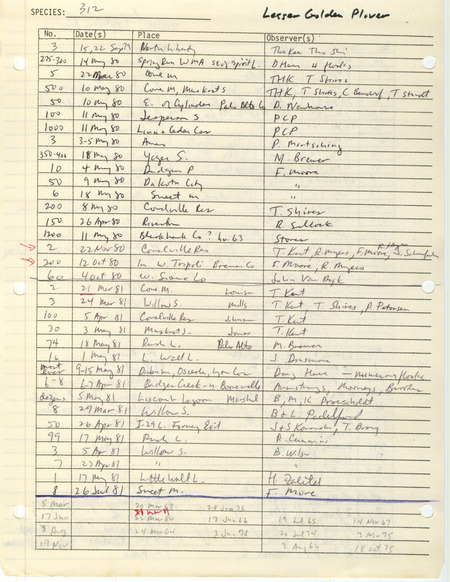 SPECIES: 312 Lesser Golden Plover
No. Date(s) Place Observer(s)
3 15, 22 Sept 79 North Liberty
275-300 14 May 80 Spring Run WMA se of Spirit L.
5 22 Mar 80 Cone M. THK T Shires
500 10 May 80 Cone M, Muskrats THK, T Shires, C Bendorf, T Staudt
50 10 May 80 E. of Cylinder Palo Alto Co D. Newhouse
100 11 May 80 Jasper Co S PCP
1000 11 May 80 Linn & Cedar Cos PCP
3 3-5 May 80 Ames P. Martsching
350-400 18 May 80 Yager S. M. Brewer
10 4 May 80 F. Moore
50 9 May 80 Dakota City "
6 18 May 80 Sweet M "
200 8 May 80 Coralville Res T. Shires
150 26 Apr 80 Riverton R. Silcock
1200 11 May 80 Black Hawk Co ? hw. 63 Stover
2 22 Nov 80 Coralville Res T. Kent, R. Myers, F. Moore,
200 12 Oct 80 in w. Tripoli Bremer Co F. Moore, R Myers
60 4 Oct 80 W. Sioux Co John Van Dyk
2 21 Mar 81 Cone M. Louisa T. Kent
3 24 Mar 81 Willow S. Mills T. Kent, T Shires, P. Petersen
100 5 Apr 81 Coralville Res Johnson T. Kent
30 3 May 81 Muskrat S. Jones T. Kent
74 18 May 81 Rush L. Palo Alto M. Brewer
16 1 May 81 L. Wall L. J. Dinsmore
9-15 May 81 Dickinson, Osceola, Lyon Cos Doug Harr — numerous flocks
6-8 6-7 Apr 81 Badger Creek - n. Booneville
dozens 5 May 81 Liscomb Lagoon Marshall B, M, K Proescholdt
8 29 Mar 81 Willow S. B & L. Padelford
50 26 Apr 81 I-29 L. Forney Exit
99 17 May 81 Rush L. R. Cummins
3 5 Apr 81 Willow S. B. Wilson
7 27 Apr 81 " "
1 17 May 81 Little Wall L. H. Zaletel
8 26 Jul 81 Sweet M. F. Moore
5 Mar 20 Mar 67
21 Mar 81
17 Jun 22 Mar 80 17 Jun 66 19 Jul 65 14 Nov 67
3 Aug 24 Mar 64 2 Jun 78 20 Jul 74 7 Nov 75
19 Nov 3 Aug 66 18 Oct 75